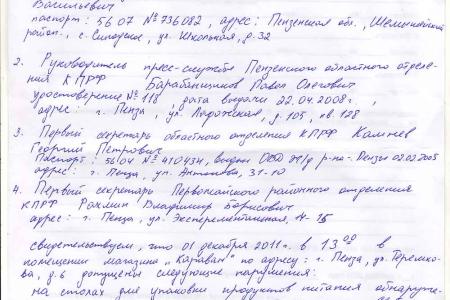 Васильевич
паспорт: 56 07 № 736082, адрес: Пензенская обл., Шемышейский
район, с. Синодское, ул. Школьная, д. 32
2. Руководитель пресс-службы Пензенского областного отделе-
ния КПРФ Барабанщиков Павел Олегович
удостоверение № 118, дата выдачи 22.04.2008г,
адрес: г. Пенза, ул. Ладожская, д. 105, кв. 128
3. Первый секретарь областного отделения КПРФ Камнев
Георгий Петрович
Паспорт: 5604 № 410434, выдан ОВД ж/д р-на г. Пензы 02.02.2005
адрес: г. Пенза, ул. Антонова, 31-10
4. Первый секретарь Первомайского районного отделения
КПРФ Рахлин Владимир Борисович
адрес: г. Пенза, ул. Экспериментальная, 14-15
свидетельствуем, что 01 декабря 2011г. в 13 00 в
помещении магазина "Караван" по адресу: г. Пенза, ул. Терешко-
ва, д. 6 допущены следующие нарушения:
на столах для упаковки продуктов питания обнаруже-